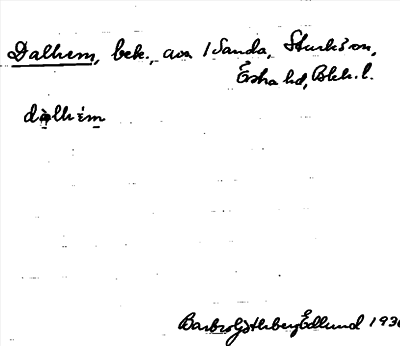 Dalhem, bek., avs 1 Sanda, Sturkö sn,
Östra hd, Blek. l.
dàlhém
Barbro Götherberg Edlund 193